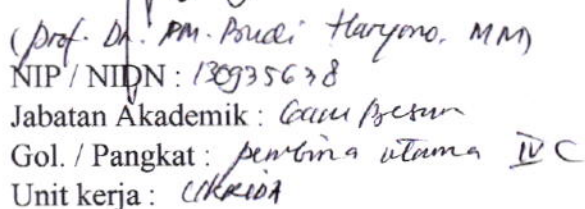 (Prof. Dr. PM. Budi Haryono. MM)
NIP / NIDN : 130935638
Jabatan Akademik : Guru Besar
Gol. / Pangkat : pembina utama IV C
Unit kerja : UKRIDA